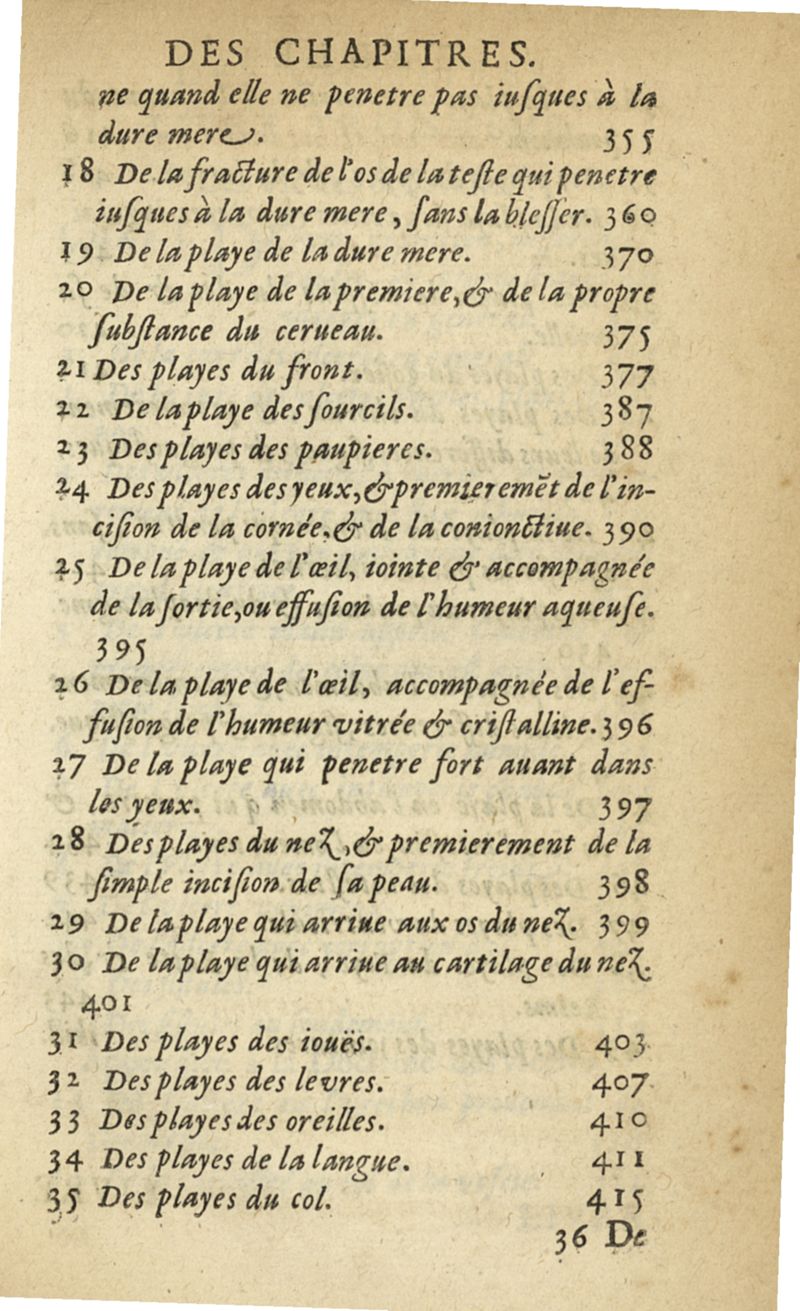 DES CHAPITRES.
ne quand elle ne penetre pas iuſques à la
dure mere. 355
18 De la fracture de l'os de la teſte qui penetre
iuſques à la dure mere, ſans la bleſſer. 360
19 De la playe de la dure mere. 370
20 De la playe de la premiere, & de la propre
ſubſtance du cerueau. 375
21 Des playes du front. 377
22 De la playe des ſourcils. 387
23 Des playes des paupieres. 388
24 Des playes des yeux, & premieremẽt de l'in-
ciſion de la cornée, & de la conionctiue. 390
25 De la playe de l'œil, iointe & accompagnée
de la ſortie, ou effuſion de l'humeur aqueuſe.
395
26 De la playe de l'œil, accompagnée de l'ef-
fuſion de l'humeur vitrée & criſtalline. 396
27 De la playe qui penetre fort auant dans
les yeux. 397
28 Des playes du nez, & premierement de la
ſimple inciſion de ſa peau. 398
29 De la playe qui arriue aux os du nez. 399
30 De la playe qui arriue au cartilage du nez.
401
31 Des playes des iouës. 403
32 Des playes des levres. 407
33 Des playes des oreilles. 410
34 Des playes de la langue. 411
35 Des playes du col. 415
36 De